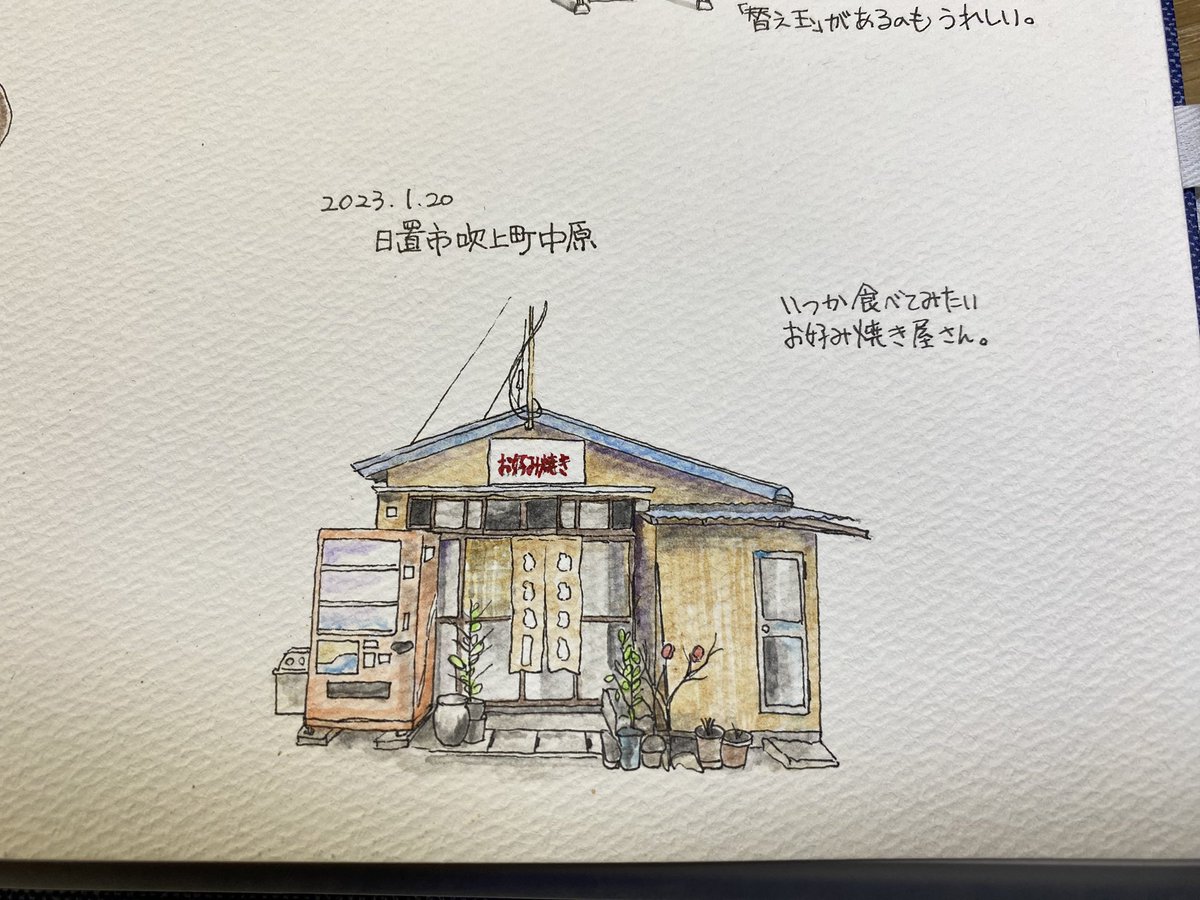 「替え玉」があるのもうれしい。
2023.1.20
日置市吹上町中原
いつか食べてみたい
お好み焼き屋さん。
お好み焼き